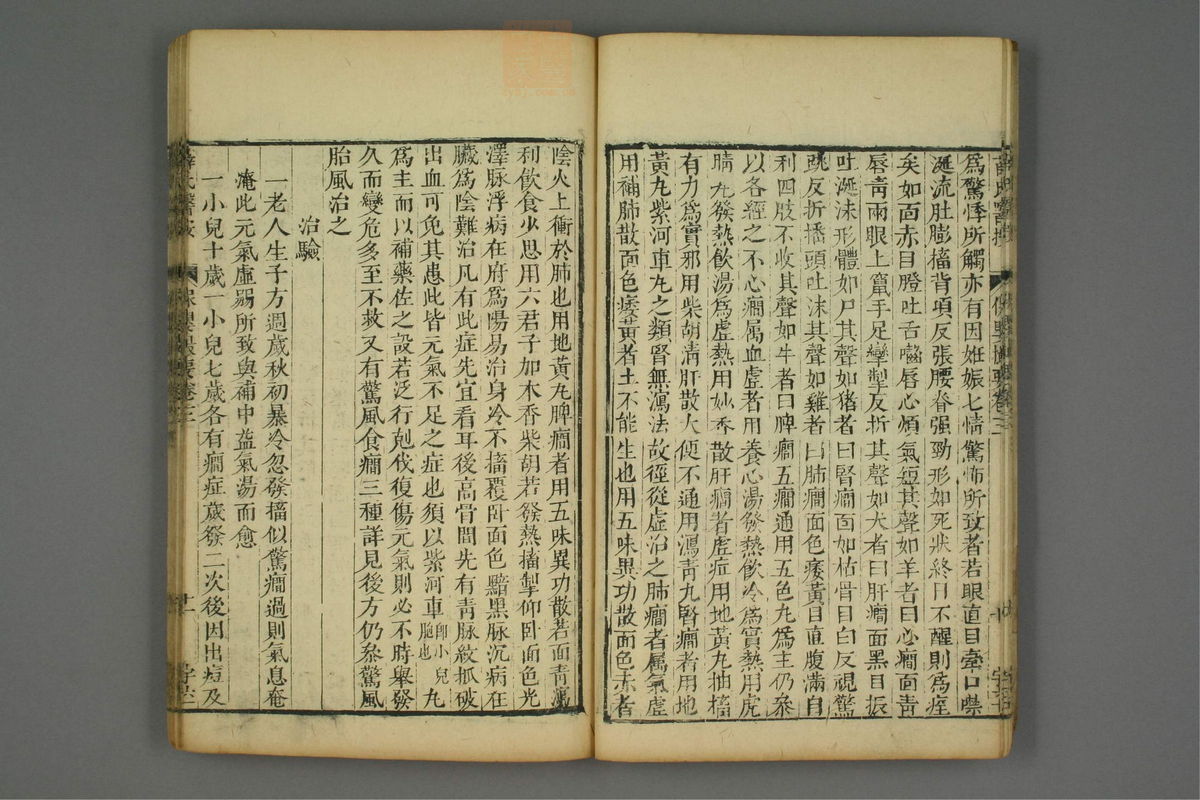 為驚悸所觸亦有因姙娠七情驚怖所致者若眼直目牽口噤
涎流肚膨搐背項反張腰脊强勁形如死狀終日不醒則為痙
矣如面赤目瞪吐舌嚙唇心煩氣短其聲如羊者曰心癎面青
唇青兩眼上竄手足攣掣反折其聲如犬者曰肝癎面黑目振
吐涎沫形體如尸其聲如猪者曰腎癎面如枯骨目白反視驚
跳反折搖頭吐沫其聲如雞者曰肺癎面色痿黃目直腹滿自
利四肢不收其聲如牛者曰脾癎五癎通用五色丸為主仍叅
以各經之不心癎属血虛者用養心湯發熱飲冷為實熱用虎
睛丸發熱飲湯為虛熱用妙香散肝癎者虛症用地黃丸抽搐
有力為實邪用柴胡清肝散大便不通用瀉青丸腎癎者用地
黃丸紫河車丸之類腎無瀉法故徑從虛治之肺癎者属氣虛
用補肺散面色痿黃者土不能生也用五味異功散面色赤者
陰火上衝於肺也用地黃丸脾癎者用五味異功散若面青瀉
利飲食少思用六君子加木香柴胡若發熱搐掣仰卧面色光
澤脉浮病在府為陽易治身冷不搐覆卧面色黯黑脉沉病在
臟為陰難治凡有此症先宜看耳後高骨間先有青脉紋抓破
出血可免其患此皆元氣不足之症也須以紫河車即小兒胞也丸
為主而以補藥佐之設若泛行剋伐復傷元氣則必不時舉發
久而變危多至不救又有驚風食癎三種詳見後方仍叅驚風
胎風治之
治驗
一老人生子方週歲秋初暴冷忽發搐似驚癎過則氣息奄
淹此元氣虛弱所致與補中益氣湯而愈
一小兒十歲一小兒七歲各有癎症歲發二次後因出痘及